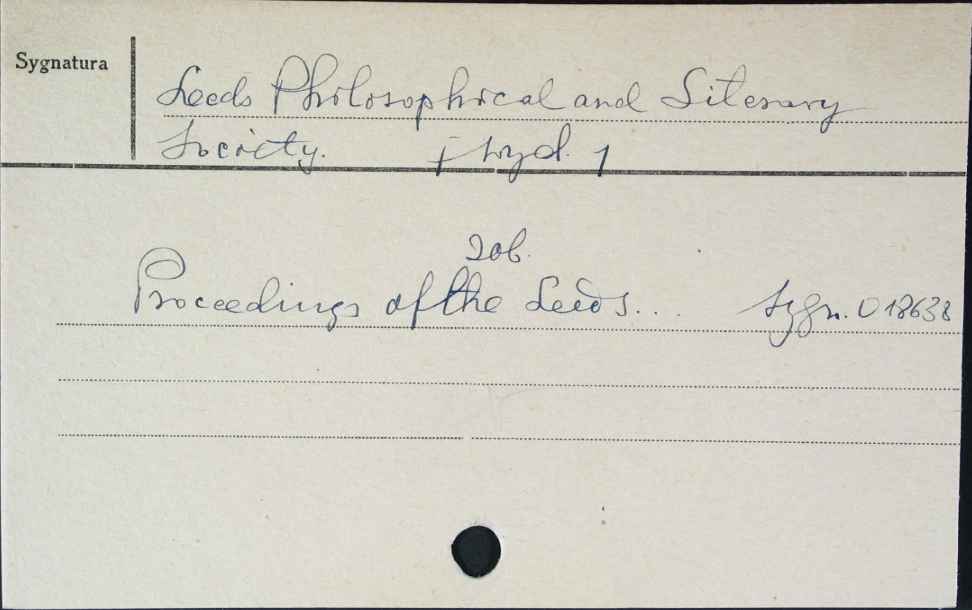 Sygnatura
Leeds Philosophical and Literary
Society. [wyd.]
Zob.
Proceedings of the Leeds... Sygn. 018638